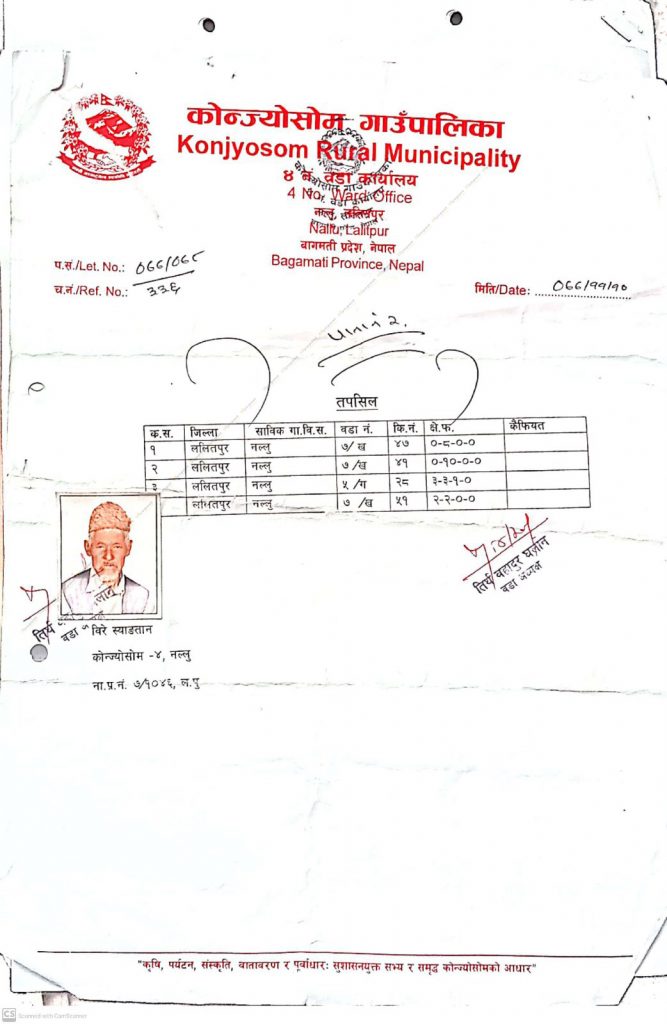 कोन्ज्योसोम गाउँपालिका
Konjyosom Rural Municipality
४ नं. वडा कार्यालय
4 No. Ward Office
नल्लु, ललितपुर
Nallu, Lalitpur
बागमती प्रदेश, नेपाल
Bagamati Province, Nepal
प.सं./Let. No.: ०७७/०७८
च.नं./Ref. No.: ३३६
मिति/Date: ०७७/११/१०
तपसिल
क.स. जिल्ला साविक गा.वि.स. वडा नं. कि.नं. क्षे.फ. कैफियत
१ ललितपुर नल्लु ७/ख ४७ ०-८-०-०
२ ललितपुर नल्लु ७/ख ४१ ०-१०-०-०
३ ललितपुर नल्लु ५/ग २८ ३-३-१-०
ललितपुर नल्लु ७/ख ५१ २-२-०-०
तिर्थ बहादुर घलान
वडा अध्यक्ष
विरे स्याङतान
कोन्ज्योसोम -४, नल्लु
ना.प्र.नं. ७/१०४६, ल.पु
"कृषि, पर्यटन, संस्कृति, वातावरण र पूर्वाधारः सुशासनयुक्त सभ्य र समृद्ध कोन्ज्योसोमको आधार"
CS Scanned with CamScanner